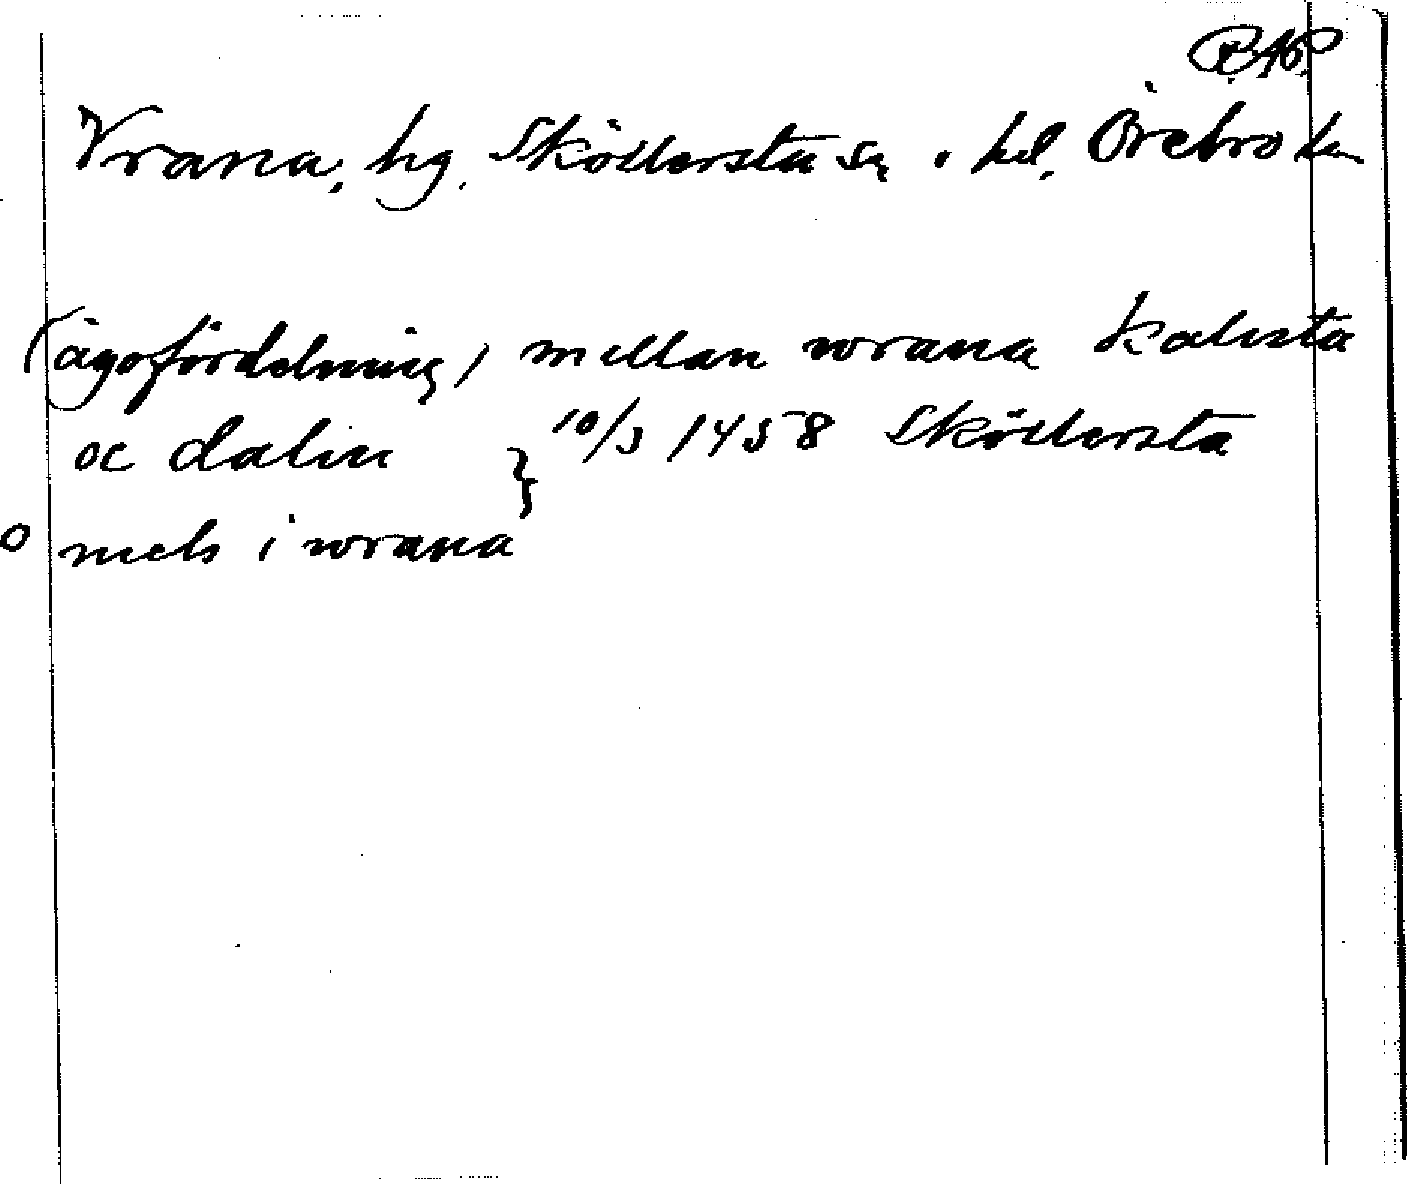 Vrana, hg. Sköllersta sn o. hd. Örebro län
(ägofördelning) mellan wrana kalista
oc dalin } 10/3 1458 Sköllersta
o mels i wrana